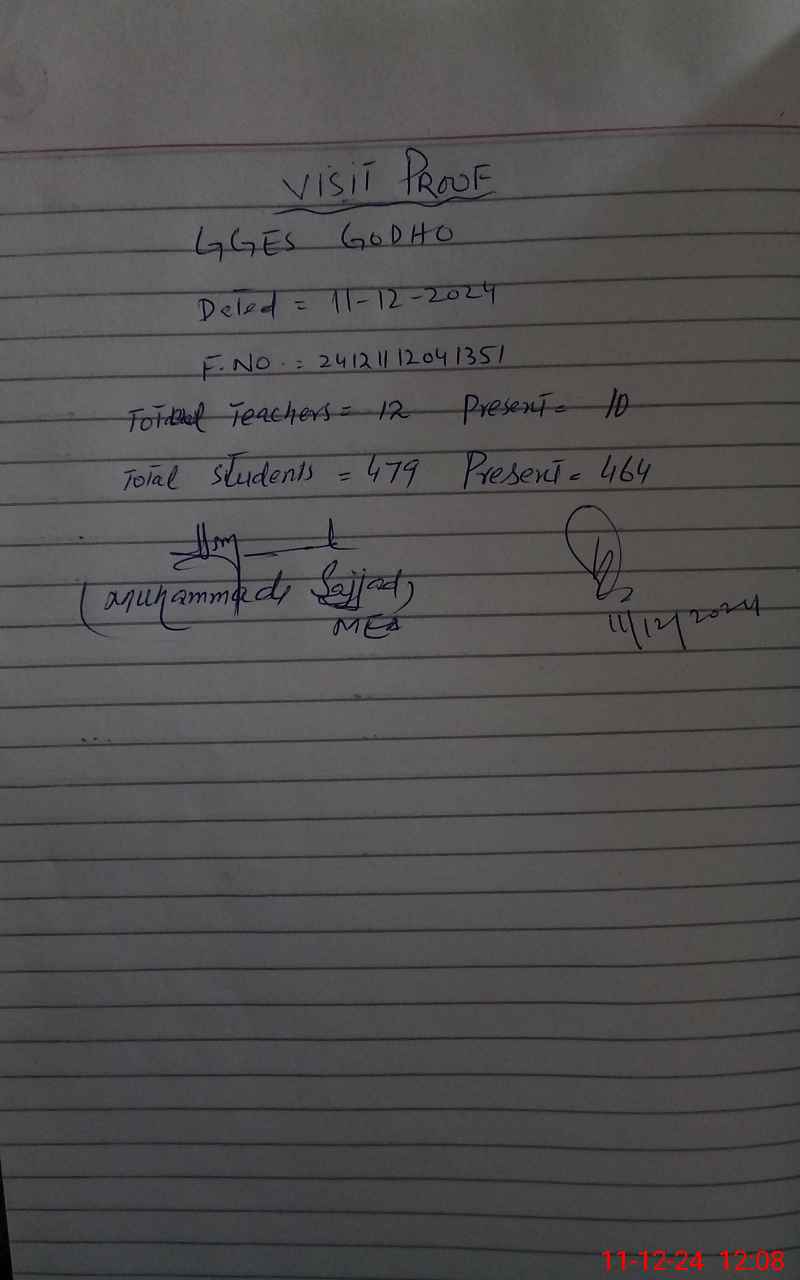 VISIT PROOF
GGES GODHO
Dated = 11-12-2024
F.NO. = 24121112041351
Total Teachers = 12 Present = 10
Total Students = 479 Present = 464
(Muhammad Sajjad)
MEA
11/12/2024
11-12-24 12:08